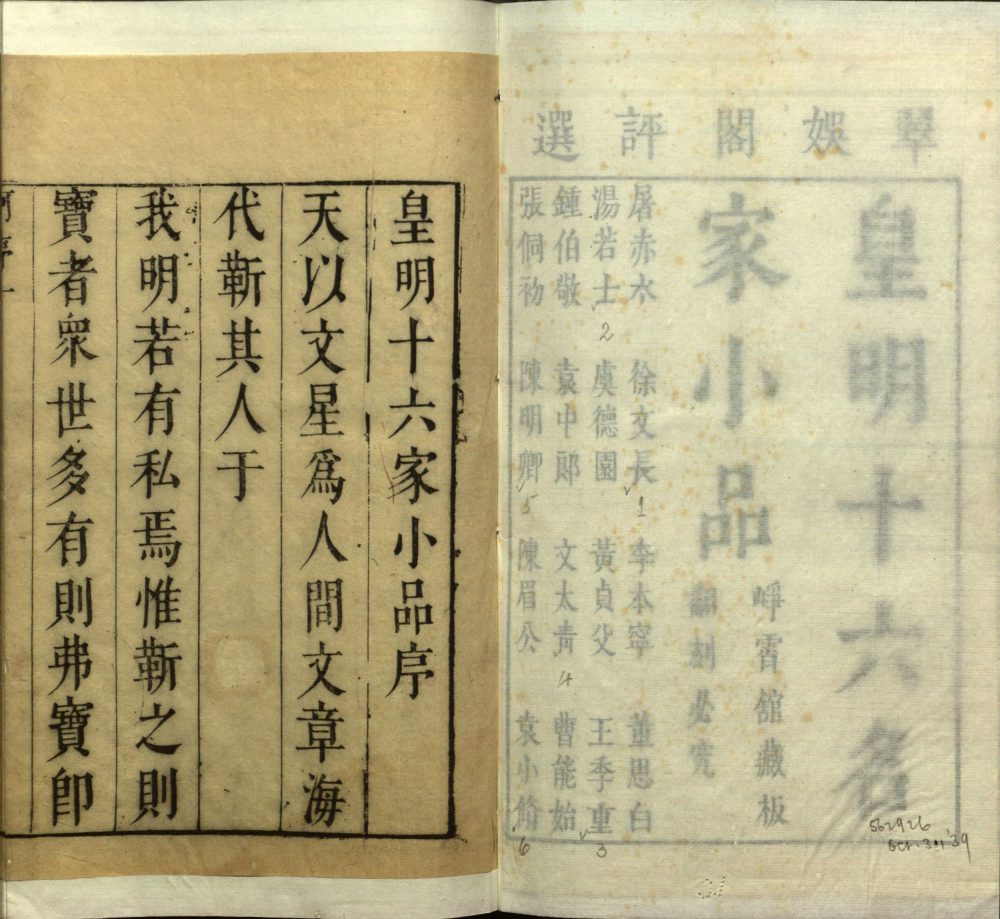 翠娛閣評選
皇明十六名
家小品
崢霄館藏板
翻刻必究
屠赤水 徐文長 李本寧 董思白
湯若士 虞德園 黃貞父 王季重
鍾伯敬 袁中郎 文太青 曹能始
張侗初 陳明卿 陳眉公 袁小脩
1
2
3
4
5
6
562926
Oct. 30 '39
皇明十六家小品序
天以文星爲人間文章海
代靳其人于
我明若有私焉惟靳之則
寶者衆世多有則弗寶卽